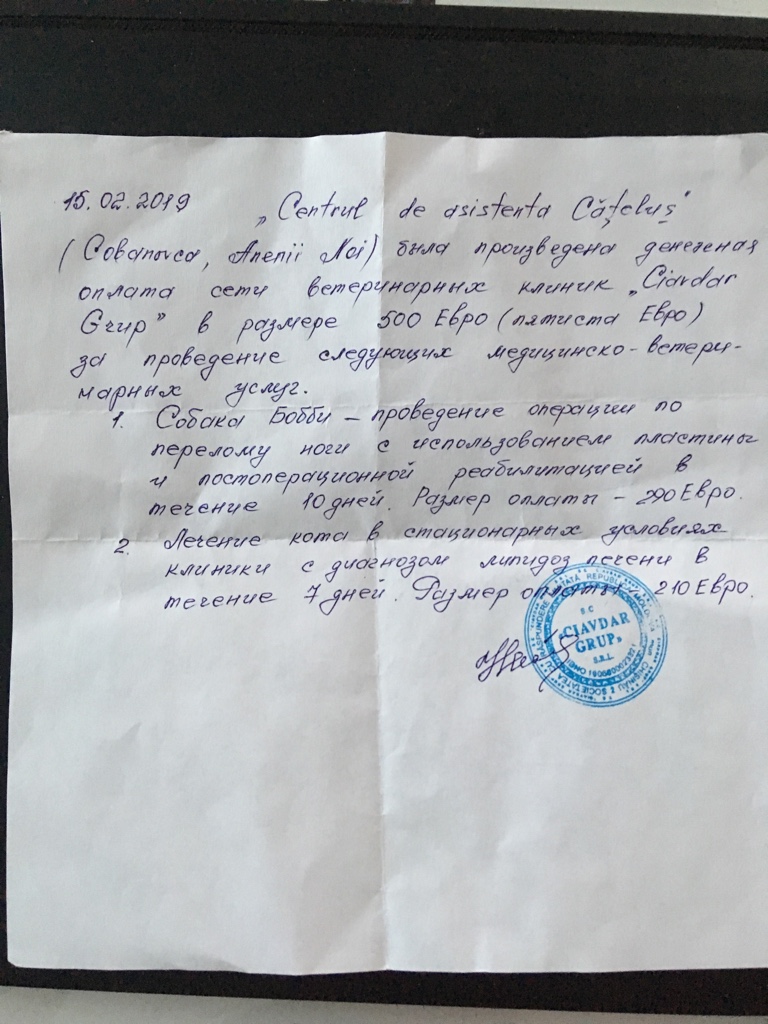 15.02.2019 „Centrul de asistenta Cățeluș"
(Cobanovca, Anenii Noi) была произведена денежная
оплата сети ветеринарных клиник „Ciavdar
Grup" в размере 500 Евро (пятиста Евро)
за проведение следующих медицинско-ветери-
нарных услуг.
1. Собака Бобби – проведение операции по
перелому ноги с использованием пластины
и постоперационной реабилитацией в
течение 10 дней. Размер оплаты – 290 Евро.
2. Лечение кота в стационарных условиях
клиники с диагнозом липидоз печени в
течение 7 дней. Размер оплаты – 210 Евро.
S.C.
«CIAVDAR
GRUP»
S.R.L.